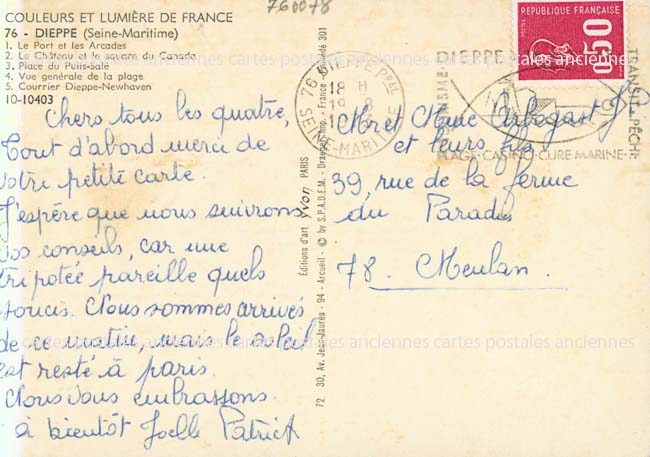 760078
COULEURS ET LUMIÈRE DE FRANCE
76 - DIEPPE (Seine-Maritime)
1. Le Port et les Arcades
2. Le Château et le square du Canada
3. Place du Puits-Salé
4. Vue générale de la plage
5. Courrier Dieppe-Newhaven
10-10403
Chers tous les quatre,
Tout d'abord merci de
votre petite carte.
J'espère que nous suivrons
vos conseils, car une
tripotée pareille quels
soucis. Nous sommes arrivés
de ce matin, mais le soleil
est resté à paris.
Nous vous embrassons.
à bientôt Joelle Patrick
Éditions d'art Yvon PARIS
72 30, Av. Jean-Jaurès - 94 - Arcueil - © by S.P.A.D.E.M. - Draeger Imp. - France - 301
REPUBLIQUE FRANÇAISE
POSTES
0,50
DIEPPE Pal
18 H
76 SEINE-MARITIME
DIEPPE
TRANSIT - PÊCHE
PLAGE-CASINO-CURE MARINE
Mr et Mme Arbogast JP
et leurs fils
39, rue de la ferme
du Paradis
78. Meulan.
cartes postales anciennes cartes postales anciennes cartes postales anciennes